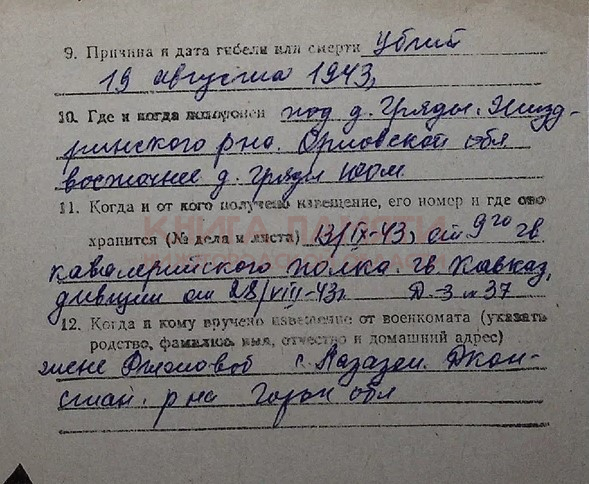 9. Причина и дата гибели или смерти Убит
19 августа 1943г
10. Где и когда похоронен под д. Гряды. Жизд-
ринского р-на. Орловской обл
восточнее д. Гряды 100м
11. Когда и от кого получено извещение, его номер и где оно
КНИГА ПАМЯТИ
хранится (№ дела и листа) 13/IX-43г от 9го гв
НИЖЕГОРОДСКОЙ ОБЛАСТИ
кавалерийского полка. гв. Кавказ,
дивизии от 28/VIII-43г Д-3 л 37
12. Когда и кому вручено извещение от военкомата (указать
родство, фамилию, имя, отчество и домашний адрес)
жене с.
р-на Горьк обл